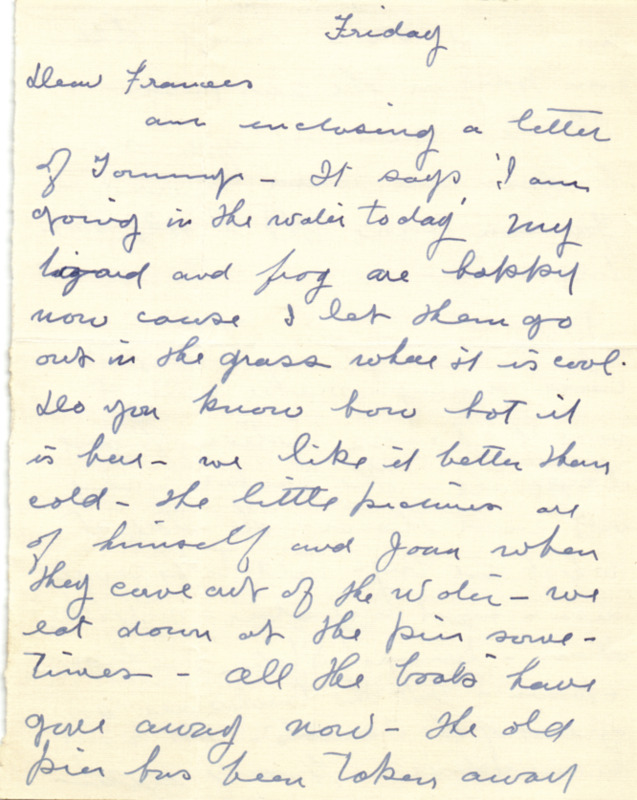 Friday
Dear Frances
am enclosing a letter
of Tommys – It says 'I am
going in the water today' My
lizard and frog are happy
now cause I let them go
out in the grass where it is cool.
Do you know how hot it
is here – we like it better than
cold – the little pictures are
of himself and Joan when
they come out of the water – we
eat down at the pier some-
times – all the boats have
gone away now – the old
pier has been taken away